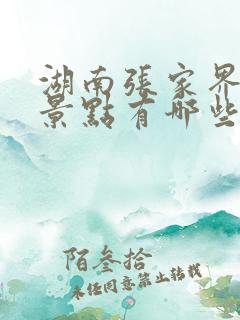 湖南張家界
景點有哪些
陌叁拾
未經同意禁止轉載